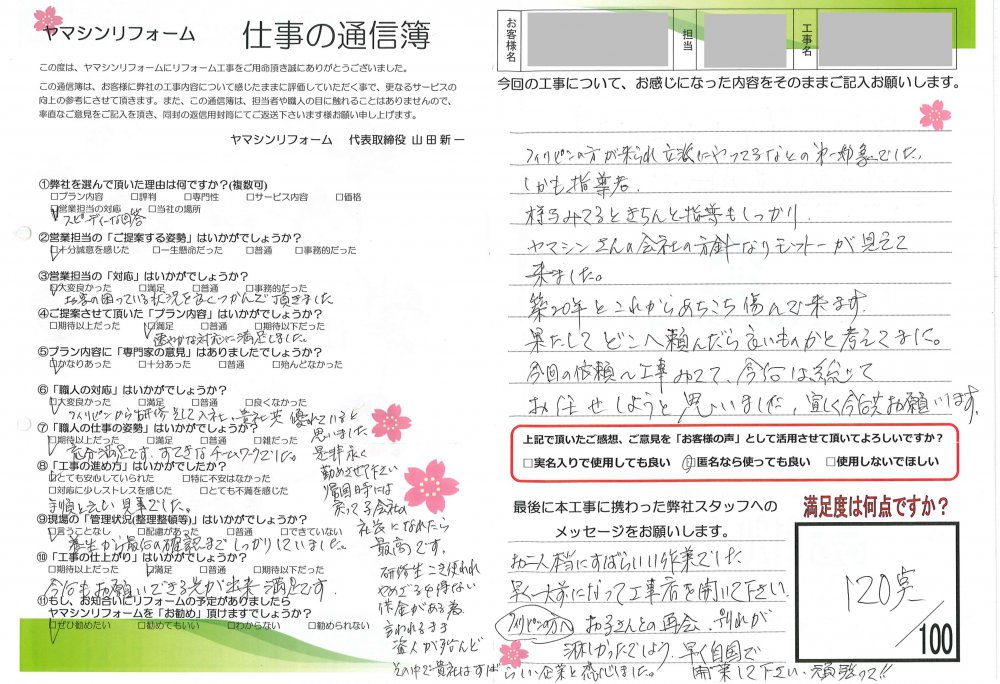 ヤマシンリフォーム 仕事の通信簿
この度は、ヤマシンリフォームにリフォーム工事をご用命頂き誠にありがとうございました。
この通信簿は、お客様に弊社の工事内容について感じたままに評価していただく事で、更なるサービスの
向上の参考にさせて頂きます。また、この通信簿は、担当者や職人の目に触れることはありませんので、
率直なご意見をご記入を頂き、同封の返信用封筒にてご返送下さいます様お願い申し上げます。
ヤマシンリフォーム 代表取締役 山田新一
①弊社を選んで頂いた理由は何ですか?(複数可)
□プラン内容 □評判 □専門性 □サービス内容 □価格
□営業担当の対応 □当社の場所
スピーディーな回答
②営業担当の「ご提案する姿勢」はいかがでしょうか?
□十分誠意を感じた □一生懸命だった □普通 □事務的だった
③営業担当の「対応」はいかがでしょうか?
□大変良かった □満足 □普通 □事務的だった
お客の困っている状況を良くつかんで頂きました
④ご提案させて頂いた「プラン内容」はいかがでしょうか?
□期待以上だった □満足 □普通 □期待以下だった
速やかな対応に満足しました。
⑤プラン内容に「専門家の意見」はありましたでしょうか?
□かなりあった □十分あった □普通 □殆んどなかった
⑥「職人の対応」はいかがでしょうか?
□大変良かった □満足 □普通 □良くなかった
フィリピンから研修をして入社、貴社共優れていると
思いました
⑦「職人の仕事の姿勢」はいかがでしょうか?
□期待以上だった □満足 □普通 □雑だった
充分満足です、すてきなチームワークでした。
是非永く
勤めさせて下さい
帰国時には
戻って会社の
社長になれたら
最高です。
⑧「工事の進め方」はいかがでしたか?
□とても安心していられた □特に不安はなかった
□対応に少しストレスを感じた □とても不満を感じた
手順と云い見事でした。
⑨現場の「管理状況(整理整頓等)」はいかがでしょうか?
□言うことなし □配慮があった □普通 □できていない
養生から最后の確認までしっかりしていました。
⑩「工事の仕上がり」はいかがでしょうか?
□期待以上だった □満足 □普通 □期待以下だった
今后もお願いできる先が出来満足です。
⑪もし、お知合いにリフォームの予定がありましたら
ヤマシンリフォームを「お勧め」頂けますでしょうか?
□ぜひ勧めたい □勧めてもいい □わからない □勧められない
研修生こき使われ
やめざるを得ない
借金がある為
言われるまま
盗人が殆んど
その中で貴社はすばらしい企業と感じました。
お客様名 担当 工事名
今回の工事について、お感じになった内容をそのままご記入お願いします。
フィリピンの方が来られ立派にやってるなとの第一印象でした。
しかも指導者.
様子みてるときちんと指導もしっかり.
ヤマシンさんの会社の方針なりモットーが見えて
来ました。
築20年とこれからあちこち傷んで来ます.
果たしてどこへ頼んだら良いものかと考えてました。
今回の依頼〜工事みてて、今后は総じて
お任せしようと思いました、宜しく今后共お願います。
上記で頂いたご感想、ご意見を「お客様の声」として活用させて頂いてよろしいですか?
□実名入りで使用しても良い □匿名なら使っても良い □使用しないでほしい
最後に本工事に携わった弊社スタッフへの
メッセージをお願いします。
お二人本当にすばらしい作業でした
早く一人前になって工事店を開いて下さい.
フィリピンの方へ お子さんとの再会.別れが
淋しかったでしょう.早く自国で
開業して下さい.頑張って!!
満足度は何点ですか?
120点
/100